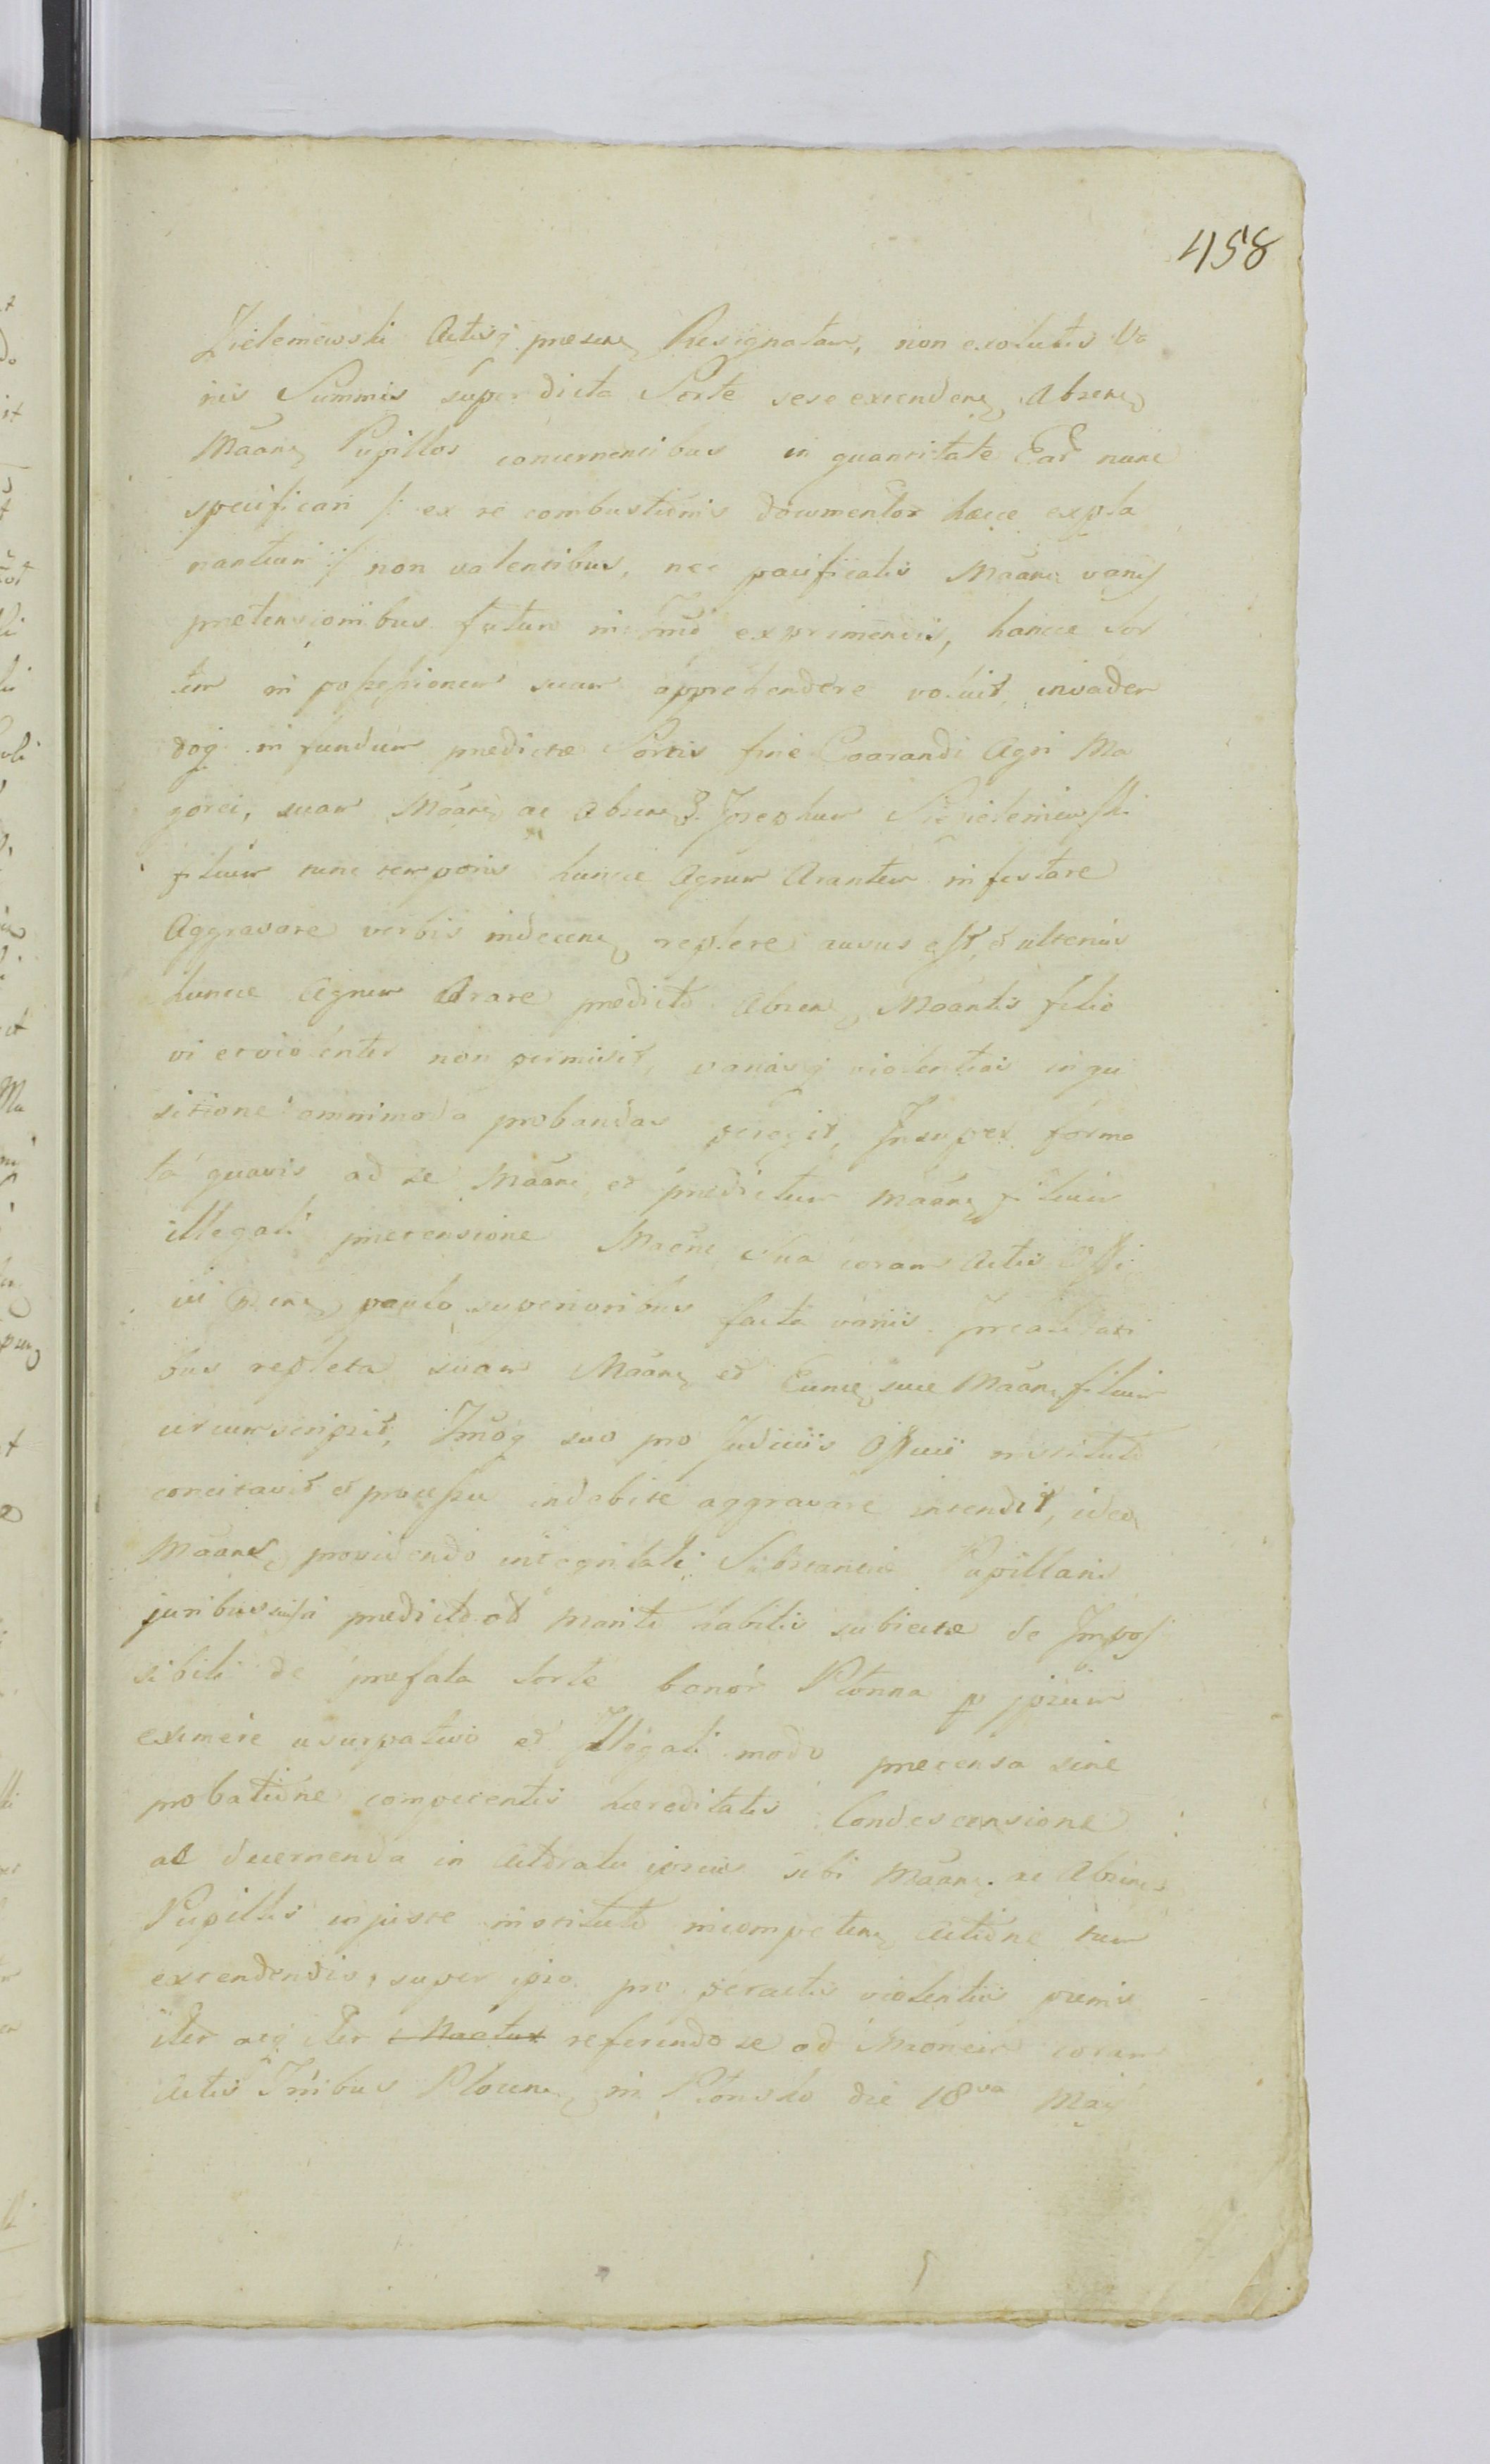 458
Zielemewski Actisq presen Resignatam, non exolutis Va
riis Summis super dicta Sorte sese extenden Absen
Maan Pupillos concernentibus in quantitate Ead nunc
specificari /: ex re combustionis documentor hæcce expla
nantium :/ non valentibus, nec pacificatis Maan varys
prætensionibus futuro in exprimendis, hancce Sor
tem in possessionem suam apprehendere voluit, invaden
doq in fundum prædictæ Sortis fine Coarandi Agri Ma
gorci, suam Maan ac Absen Josephum
filium tunc temporis huncce Agrum Arantem infestare
Aggravare verbis indecen replere ausus est, et ulterius
huncce Agrum Arare prædicto Absen Maantis filio
vi et violenter non permisit, variasq violentias inqui
sitione omnimoda probandas peregit, Insuper forma
ta quavis ad se Maan et prædictum Maan filium
illegali prætensione Maõne sua coram Actis Offi
cii paulo superioribus facta variis
bus repleta suam Maan et Eunce suæ Maan filium
circumscripsit, Imoq suo pro Judiciis Officii instituto
concitavit et processu indebite aggravare intendit, ideo
Maans providendo integritati Substantiæ Pupillaris
juribus prædicto ad mariti habitis subiectæ de Impos
sibili de præfata Sorte bonor Płonna p ipsum
eximere usurpativo et Illegali modo prætensa sine
probatione competentis hæreditatis Condescensione
ac decernenda in Actoratu ipsius sibi Maan ac Absens
Pupillis injuste instituto incompeten Actione tum
extendendis super ipso pro peractis violentiis pœnis
iter aeq iter referendo se ad Maõnem coram
Actis Tribus Plocen in Płonsko die 18va Maij